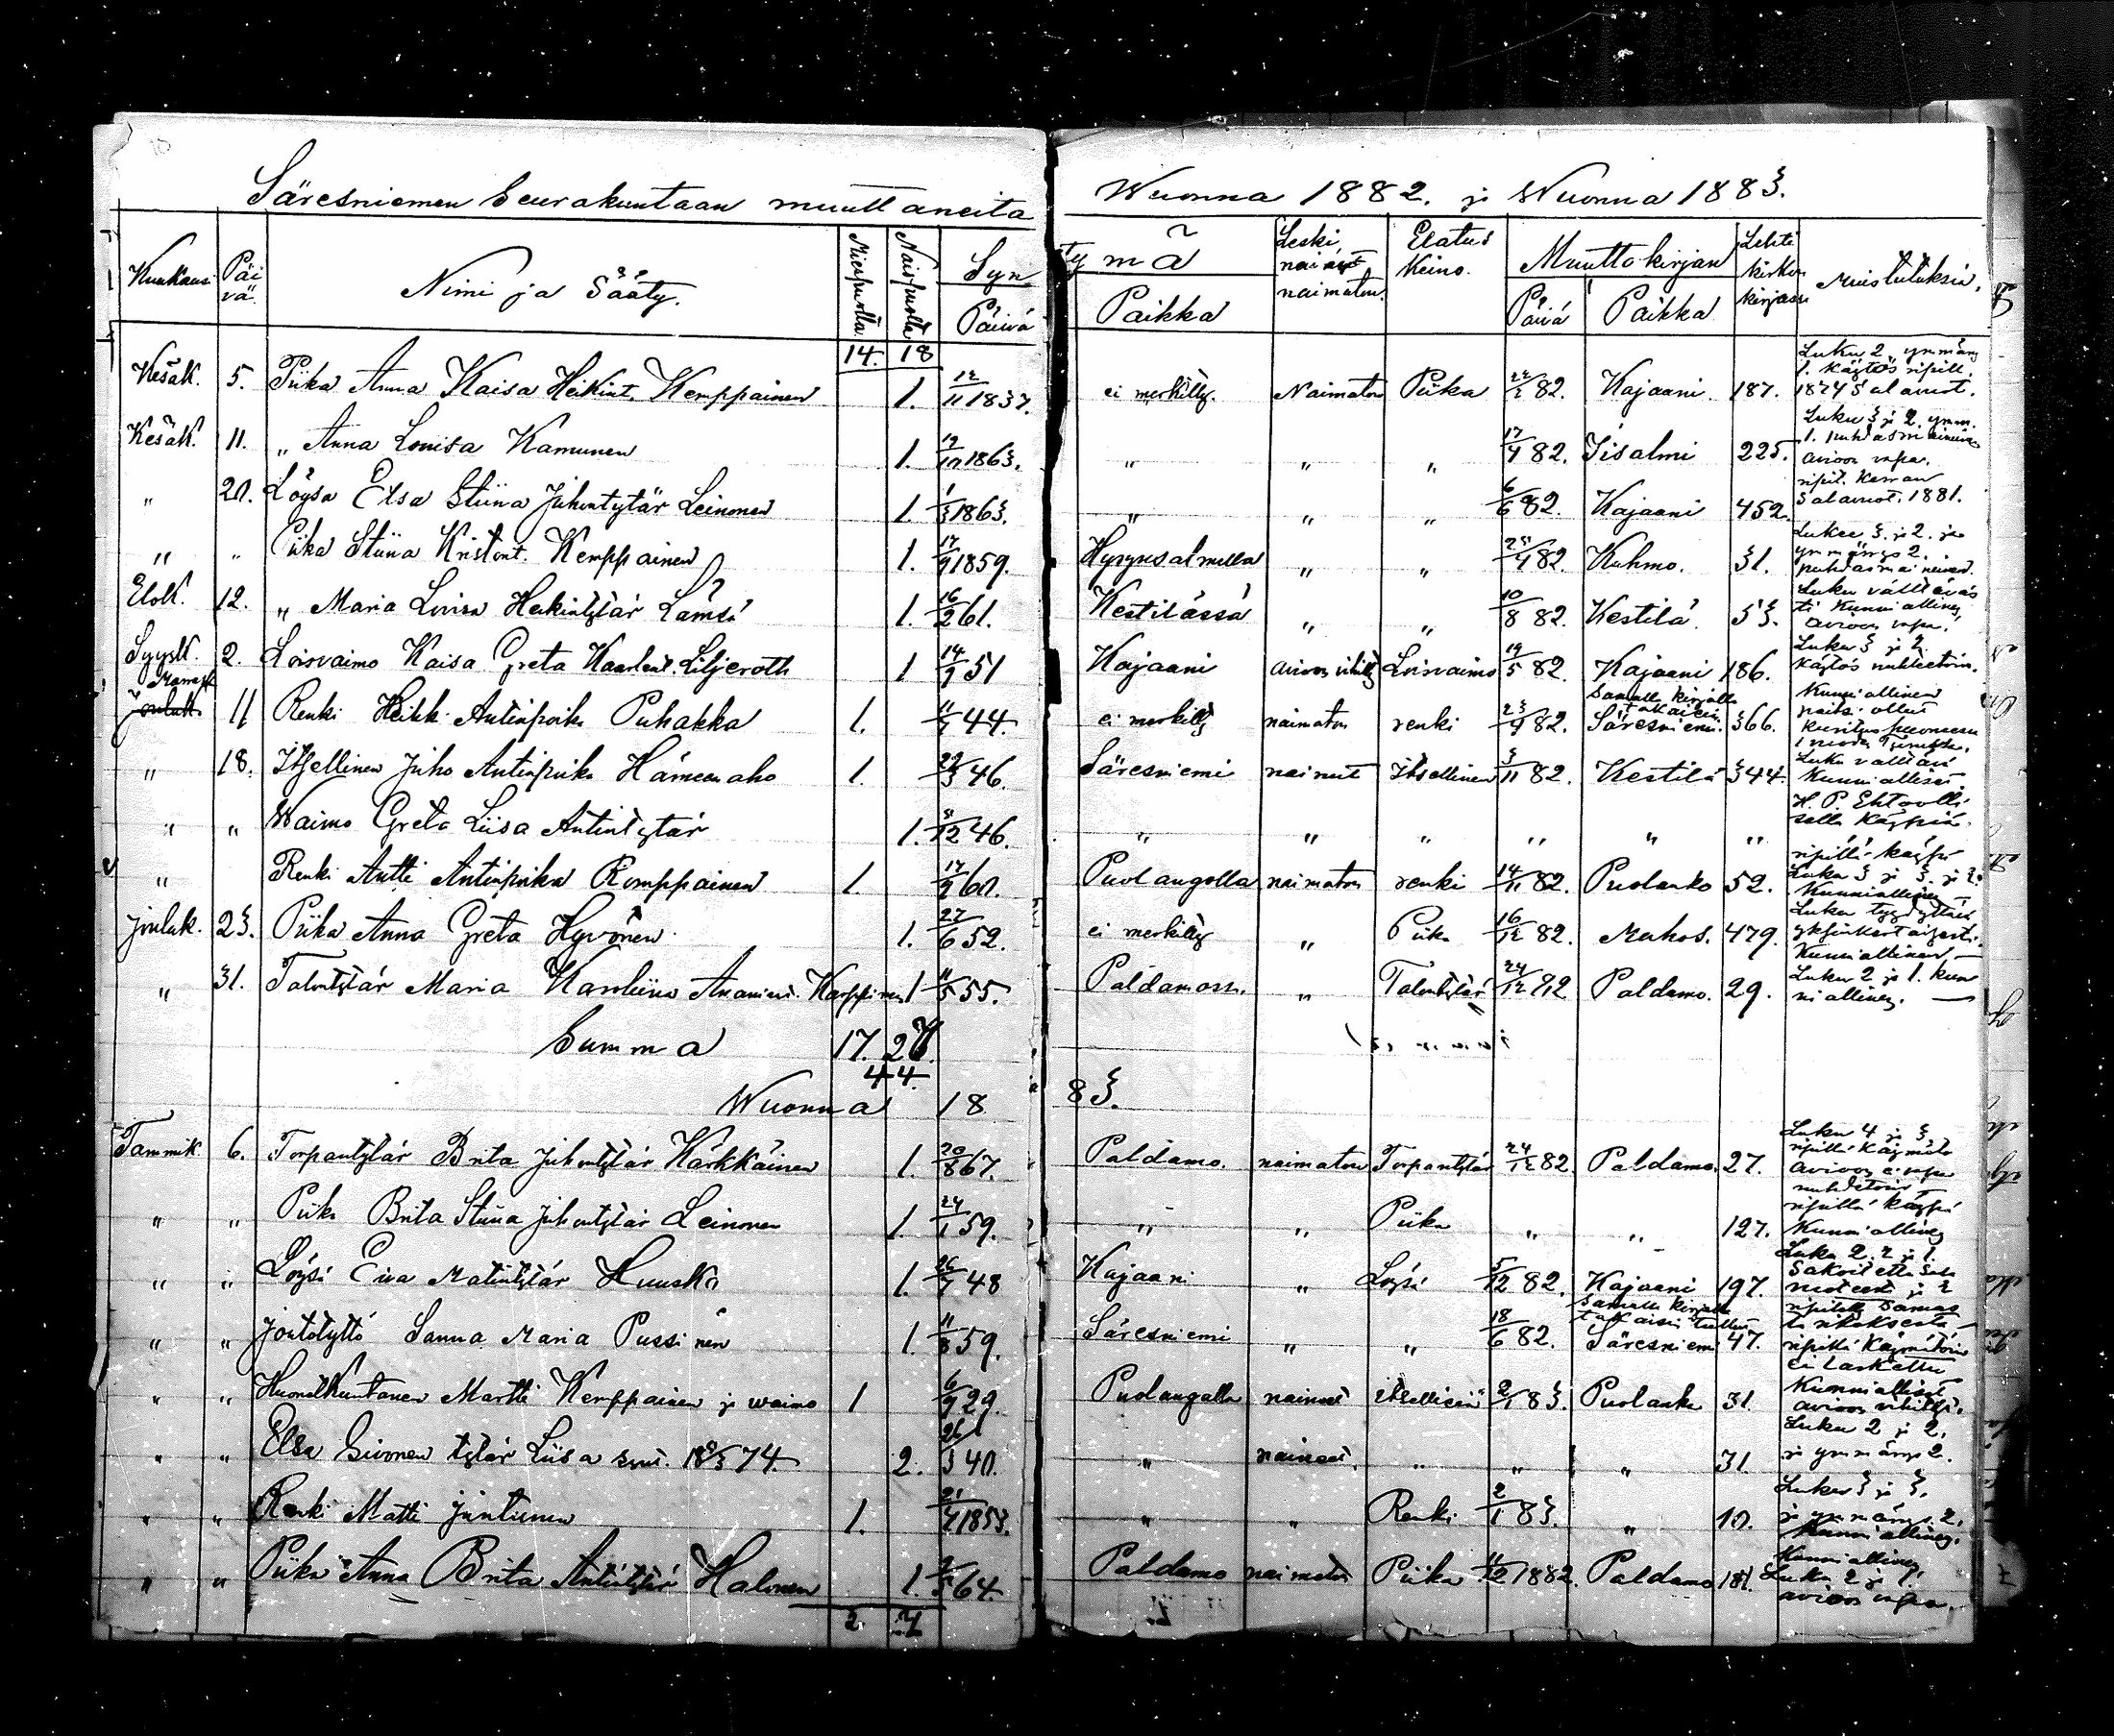 Säresniemen Seurakuntaan muuttaneita Wuonna 1882. ja Wuonna 1883.
Kuukausi Päivä. Nimi ja Sääty. Miespuolta Naispuolta Syntymä Leski, nainut naimaton. Elatus Keino. Muuttokirjan Lehti kirkonkirjassa Muistutuksia.
Päivä Paikka Päivä Paikka
14. 18
Kesäk. 5. Piika Anna Kaisa Heikint. Kemppainen 1. 12/11 1837. ei merkitty. Naimaton Piika 22/2 82. Kajaani. 187. Luku 2, ymmärrys 1. käytös ripill. 1874
Kesäk. 11. " Anna Lovisa Kamunen 1. 19/10 1863. " " " 17/4 82. Iisalmi 225. Luku 3 ja 2. ymm. 1. avioon vapa.
" 20. Löysä Elsa Stiina Juhontytär Leinonen 1. 1/3 1863. " " " 6/6 82. Kajaani 452. ripit. kerran 1881.
" " Piika Stiina Kristont. Kemppainen 1. 17/9 1859. Hyrynsalmella " " 82. Kuhmo. 31. Lukee 3. ja 2. ja ymmärrys 2.
Elok. 12. " Maria Lovisa Heikintytär Lämsä 1. 16/2 61. Kestilässä " " 10/8 82. Kestilä. 53. Luku välttävästi kunniallinen avioon vapa.
Syysk. 2. Loisvaimo Kaisa Greta Kaarlent. Liljeroth 1 14/9 51 Kajaani avioon vihitty Loisvaimo 19/5 82. Kajaani 186. Luku 3 ja 2 käytös nuhteetoin.
Marrask. 11 Renki Heikki Antinpoika Puhakka 1. 11/4 44. ei merkitty naimaton renki 23/9 82. Samalla kirjalla takaisin Säresniemi. 366. Kunniallinen paitsi ollut
" 18. Itsellinen Juho Antinpoika Hämeenaho 1. 22/3 46. Säresniemi nainut Itsellinen 3/11 82. Kestilä 344. Luku välttävä Kunnialliset
" " Waimo Greta Liisa Antintytär 1. 12 46. " " " " " " H. P. Ehtoollisella käypiä.
" Renki Antti Antinpoika Romppainen 1. 17/2 60. Puolangolla naimaton renki 14/11 82. Puolanko 52. ripillä käypä Luku 3 ja 3. ja 2. Kunniallinen
Jouluk. 23. Piika Anna Greta Hyvönen 1. 27/6 52. ei merkitty " Piika 16/12 82. Muhos. 479. Luku tyydyttävä Kunniallinen
" 31. Talontytär Maria Karoliina Ananiant. Karppinen 1 11/5 55. Paldamossa. " Talontytär 24/12 82 Paldamo. 29. Luku 2 ja 1. kunniallinen.
Summa 17. 27.
44.
Wuonna 1883.
Tammik. 6. Torpantytär Brita Juhontytär Kärkkäinen 1. 20/8 67. Paldamo. naimaton Torpantytär 24/12 82. Paldamo. 27. Luku 4 ja 3, ripillä käymätö avioon ei vapa
" " Piika Brita Stiina Juhontytär Leinonen 1. 24/1 59. " " Piika " " 127. ripillä käypä Kunniallinen
" " Löysä Eeva Matintytär Huusko 1. 26/7 48 Kajaani " Löysä 5/12 82. Kajaani 197. Luku 2. 2 ja 1.
" " Joutotyttö Sanna Maria Pussinen 1. 11/8 59. Säresniemi " " 18/6 82. Samalla kirjalla takaisin tullut Säresniemi 47. ripillä käymätöin ei laskettu
" " Huonekuntanen Martti Kemppainen ja waimo 1 6/9 29. Puolangalla naineet itsellisiä 2/1 83. Puolanka 31. Kunnialliset avioon vihityt.
" " Elsa Sivonen tytär Liisa synt. 74. 2. 26/3 40. " naineet. " " " 31. Luku 2 ja 2. ja ymmärrys 2.
" " Renki Matti Juntunen 1. 21/4 1853. " " Renki 2/1 83. " 10. Luku 3 ja 3. ja ymmärrys. 2. Kunniallinen.
" " Piika Anna Brita Antintytär Halonen 1. 64. Paldamo naimaton Piika 11/12 1882. Paldamo 181. Kunniallinen, Luku 2 ja 1. avioon vapa.
2. 7